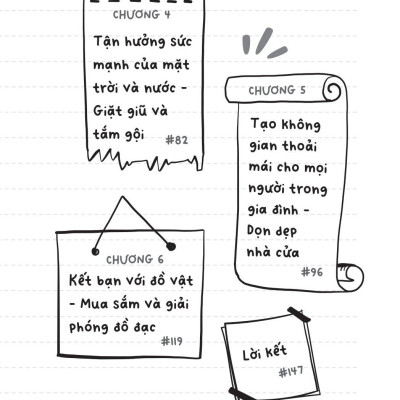 CHƯƠNG 4
Tận hưởng sức
mạnh của mặt
trời và nước -
Giặt giũ và
tắm gội
#82
CHƯƠNG 5
Tạo không
gian thoải
mái cho mọi
người trong
gia đình -
Dọn dẹp
nhà cửa
#96
CHƯƠNG 6
Kết bạn với đồ vật
- Mua sắm và giải
phóng đồ đạc
#119
Lời kết
#147